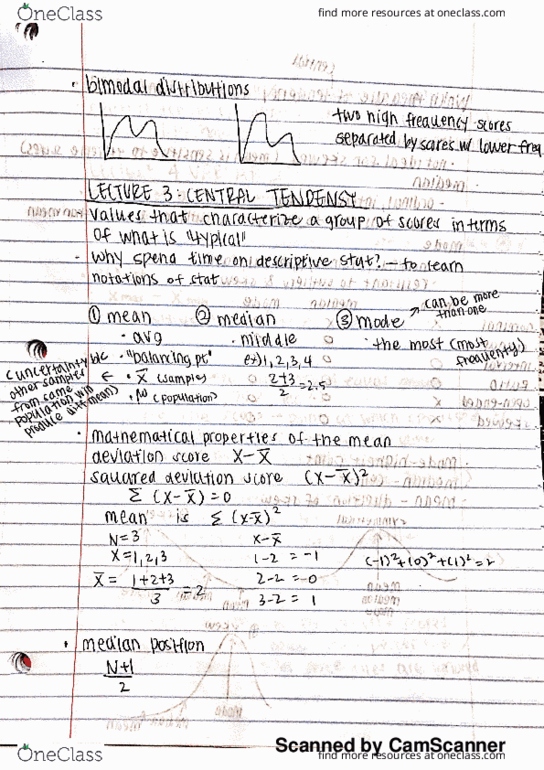 OneClass
find more resources at oneclass.com
· bimodal distributions
two high frequency scores
separated by scores w/ lower freq
LECTURE 3: CENTRAL TENDENSY
values that characterize a group of scores in terms
of what is "typical"
· why spend time on descriptive stat? – to learn
notations of stat
① mean ② median ③ mode ↗ can be more than one
· avg · middle · the most (most frequently)
· "balancing pt" ex) 1, 2, 3, 4
· X̅ (sample) 2+3/2 = 2.5
· (population)
uncertainty b/c other samples from same population will produce diff. mean)
· mathematical properties of the mean
deviation score X−X̅
squared deviation score (X−X̅)²
Σ (X−X̅) = 0
mean is Σ (X−X̅)²
N=3 X−X̅
X=1,2,3 1−2 = −1 (−1)²+(0)²+(1)²=2
X̅ = 1+2+3/3 = 2 2−2 = 0
3−2 = 1
· median position
N+1/2
Scanned by CamScanner
OneClass
find more resources at oneclass.com